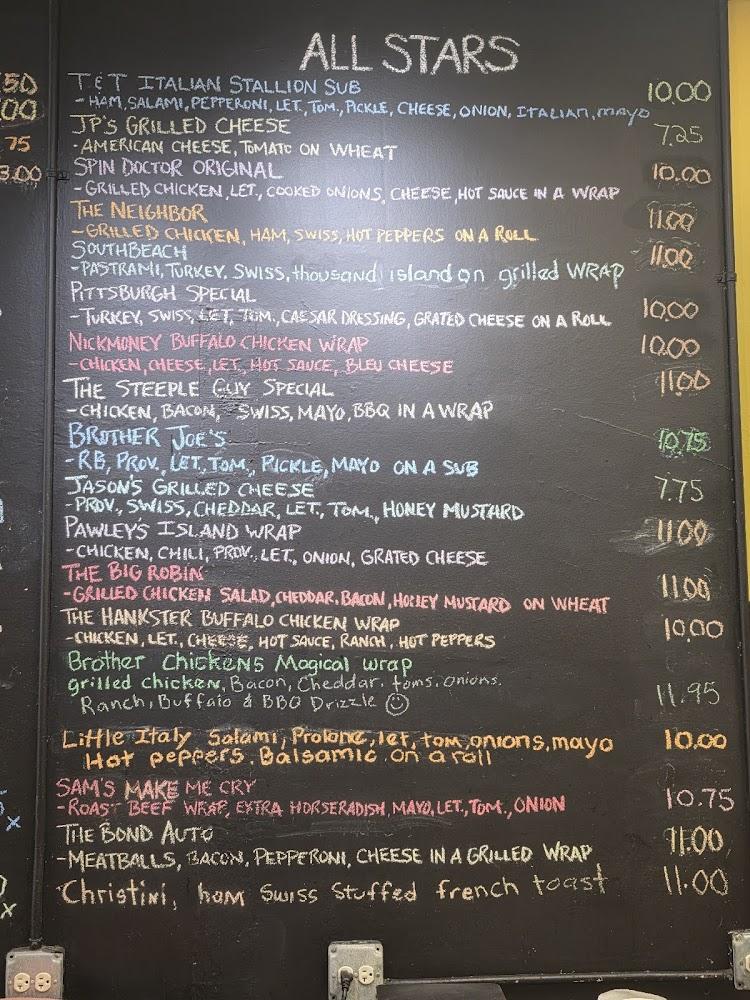 ALL STARS
T&T ITALIAN STALLION SUB 10.00
- HAM, SALAMI, PEPPERONI, LET, TOM, PICKLE, CHEESE, ONION, ITALIAN, mayo
JP'S GRILLED CHEESE 7.25
- AMERICAN CHEESE, TOMATO ON WHEAT
SPIN DOCTOR ORIGINAL 10.00
- GRILLED CHICKEN, LET., COOKED ONIONS, CHEESE, HOT SAUCE IN A WRAP
THE NEIGHBOR 11.00
- GRILLED CHICKEN, HAM, SWISS, HOT PEPPERS ON A ROLL
SOUTHBEACH 11.00
- PASTRAMI, TURKEY, SWISS, thousand island on grilled WRAP
PITTSBURGH SPECIAL 10.00
- TURKEY, SWISS, LET, TOM., CAESAR DRESSING, GRATED CHEESE ON A ROLL
NICKMONEY BUFFALO CHICKEN WRAP 10.00
- CHICKEN, CHEESE, LET, HOT SAUCE, BLEU CHEESE
THE STEEPLE GUY SPECIAL 11.00
- CHICKEN, BACON, SWISS, MAYO, BBQ IN A WRAP
BROTHER JOE'S 10.75
- RB, PROV., LET, TOM., PICKLE, MAYO ON A SUB
JASON'S GRILLED CHEESE 7.75
- PROV., SWISS, CHEDDAR, LET., TOM., HONEY MUSTARD
PAWLEY'S ISLAND WRAP 11.00
- CHICKEN, CHILI, PROV., LET., ONION, GRATED CHEESE
THE BIG ROBIN 11.00
- GRILLED CHICKEN SALAD, CHEDDAR, BACON, HONEY MUSTARD ON WHEAT
THE HANKSTER BUFFALO CHICKEN WRAP 10.00
- CHICKEN, LET., CHEESE, HOT SAUCE, RANCH, HOT PEPPERS
Brother Chickens Magical wrap
grilled chicken, Bacon, Cheddar, toms, onions. 11.95
Ranch, Buffalo & BBQ Drizzle
Little Italy Salami, Prolone, let, tom, onions, mayo 10.00
Hot peppers, Balsamic on a roll
SAM'S MAKE ME CRY 10.75
- ROAST BEEF WRAP, EXTRA HORSERADISH, MAYO, LET., TOM., ONION
THE BOND AUTO 11.00
- MEATBALLS, BACON, PEPPERONI, CHEESE IN A GRILLED WRAP
Christini, ham Swiss Stuffed french toast 11.00
50
00
75
3.00